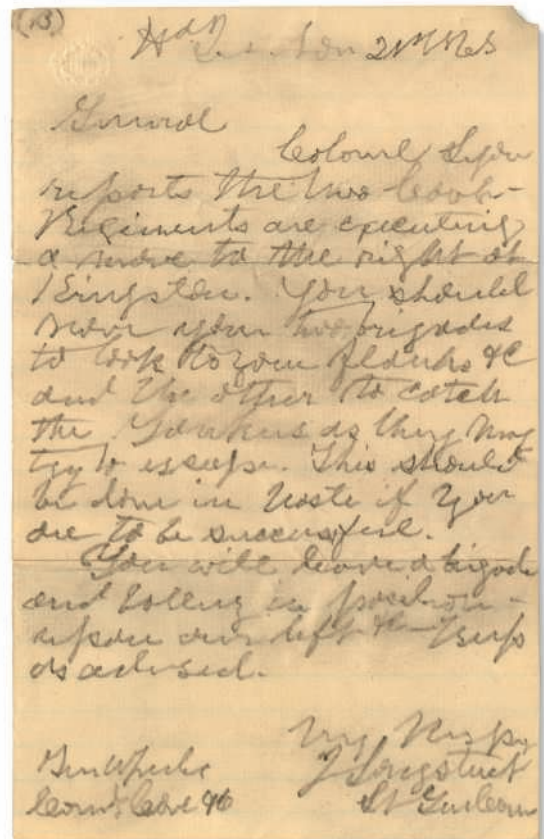 (13)
Hd Qrs 21st 1863
General
Colonel
reports the two Cav
Regiments are executing
a move to the right at
Kingston. You should
move your two brigades
to look to your flanks &c
and the other to catch
the Yankees as they may
try to escape. This should
be done in haste if you
are to be successful.
You will leave a brigade
and in position
upon our left
as advised.
Very Respy
J Longstreet
Lt Gen Com
Gen Wheeler
Comd Cav &c